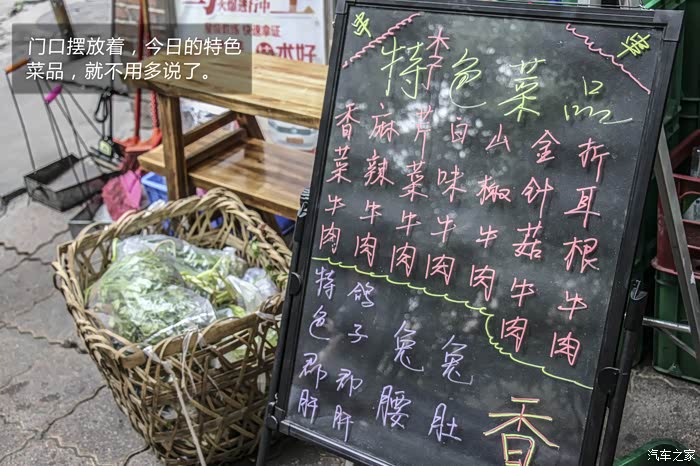 门口摆放着，今日的特色
菜品，就不用多说了。
火爆进行中
快速拿证
特色菜品
香菜牛肉
麻辣牛肉
芹菜牛肉
白味牛肉
山椒牛肉
金针菇牛肉
折耳根牛肉
特色郡肝
鸽子郡肝
兔腰
兔肚
香
汽车之家